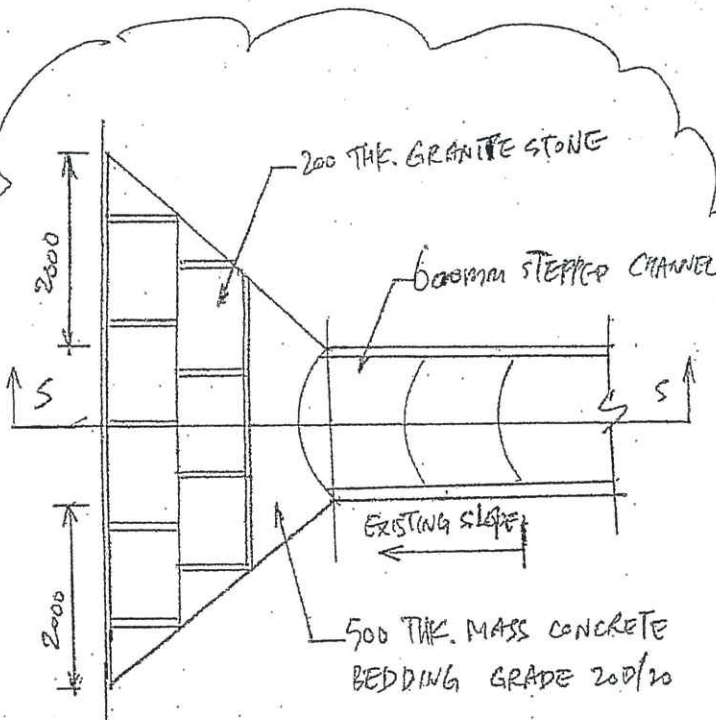 200 THK. GRANITE STONE
600mm STEPPED CHANNEL
2000
S
S
EXISTING SLOPE
2000
500 THK. MASS CONCRETE
BEDDING GRADE 20D/20